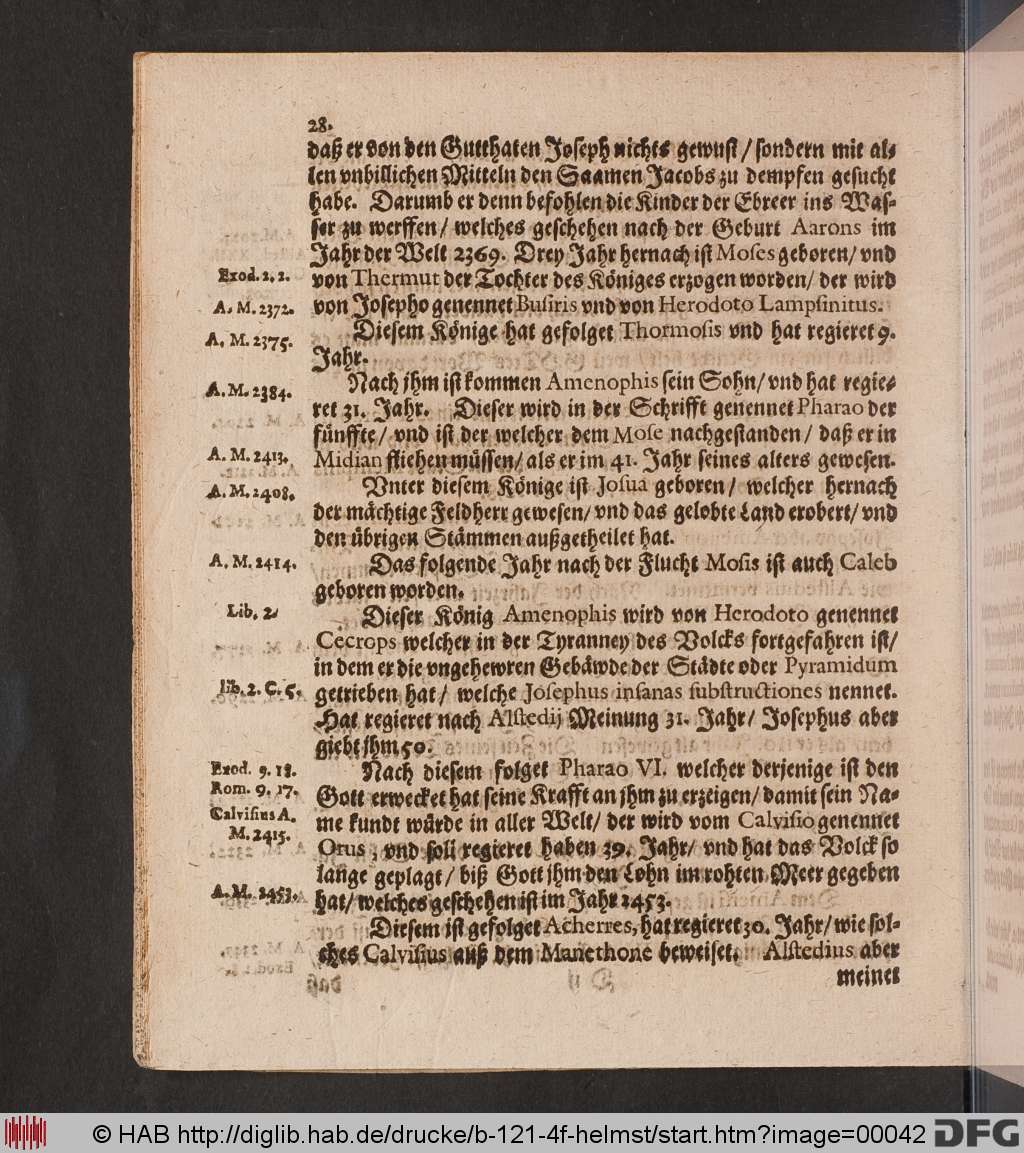 28.
daß er von den Gutthaten Joseph nichts gewust / sondern mit al-
len vnbillichen Mitteln den Saamen Jacobs zu dempfen gesucht
habe. Darumb er denn befohlen die Kinder der Ebreer ins Was-
ser zu werffen / welches geschehen nach der Geburt Aarons im
Jahr der Welt 2369. Drey Jahr hernach ist Moses geboren / vnd
Exod. 2, 2.
von Thermut der Tochter des Königes erzogen worden / der wird
A. M. 2372.
von Josepho genennet Busiris vnd von Herodoto Lampsinitus.
A. M. 2375.
Diesem Könige hat gefolget Thormosis vnd hat regieret 9.
Jahr.
A. M. 2384.
Nach jhm ist kommen Amenophis sein Sohn / vnd hat regie-
ret 31. Jahr. Dieser wird in der Schrifft genennet Pharao der
fünffte / vnd ist der welcher dem Mose nachgestanden / daß er in
A. M. 2413.
Midian fliehen müssen / als er im 41. Jahr seines alters gewesen.
A. M. 2408.
Vnter diesem Könige ist Josua geboren / welcher hernach
der mächtige Feldherr gewesen / vnd das gelobte Land erobert / vnd
den übrigen Stämmen außgetheilet hat.
A. M. 2414.
Das folgende Jahr nach der Flucht Mosis ist auch Caleb
geboren worden.
Lib. 2.
Dieser König Amenophis wird von Herodoto genennet
Cecrops welcher in der Tyranney des Volcks fortgefahren ist /
in dem er die vngehewren Gebäwde der Städte oder Pyramidum
lib. 2. C. 5.
getrieben hat / welche Josephus insanas substructiones nennet.
Hat regieret nach Alstedij Meinung 31. Jahr / Josephus aber
giebt jhm 50.
Exod. 9. 18.
Nach diesem folget Pharao VI. welcher derjenige ist den
Rom. 9. 17.
Gott erwecket hat seine Krafft an jhm zu erzeigen / damit sein Na-
Calvisius A.
M. 2415.
me kundt würde in aller Welt / der wird vom Calvisio genennet
Orus, vnd soll regieret haben 39. Jahr / vnd hat das Volck so
lange geplagt / biß Gott jhm den Lohn im rohten Meer gegeben
A. M. 2453.
hat / welches geschehen ist im Jahr 2453.
Diesem ist gefolget Acherres, hat regieret 30. Jahr / wie sol-
ches Calvisius auß dem Manethone beweiset. Alstedius aber
meinet
© HAB http://diglib.hab.de/drucke/b-121-4f-helmst/start.htm?image=00042
DFG